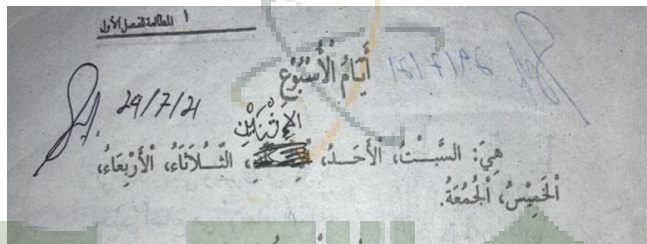 المطالعة للفصل الأول ١
أَيَّامُ الْأُسْبُوْعِ
29/7/21
الإِثْنَيْنِ
هِيَ: السَّبْـــتُ، الْأَحَــدُ، ، الثُّــلَاثَاءُ، الْأَرْبِعَاءُ،
الْخَمِيْسُ، الْجُمُعَةُ.